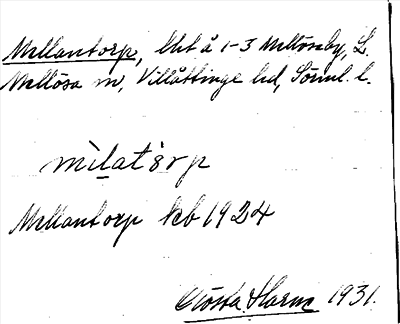 Mellantorp, lht å 1-3 Mellösaby, L.
Mellösa sn, Villåttinge hd, Sörml. l.
mìlat`ǝrp
Mellantorp kb 1924
Gösta Harm 1931.